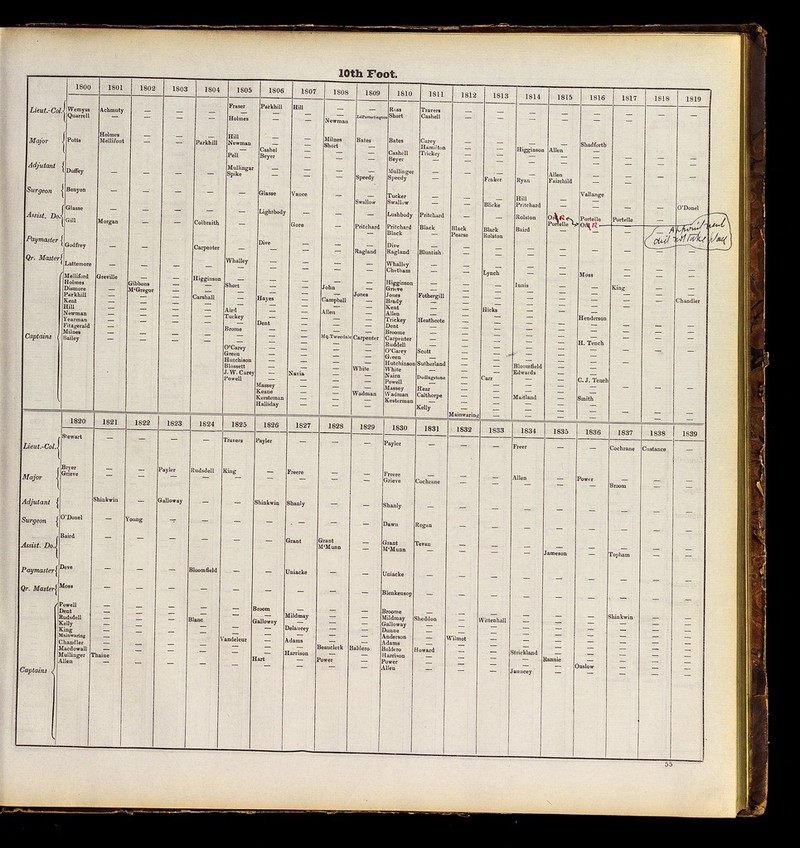 10th Foot.
1800 1801 1802 1803 1804 1805 1806 1807 1808 1809 1810 1811 1812 1813 1814 1815 1816 1817 1818 1819
Lieut.-Col. Wemyss Achmuty — — — Fraser Parkhill Hill — — Ross Travers — — — — — — — —
Quarrell — — — — Holmes — — Newman Short Cashell — — — — — — — —
Major Potts Holmes — — — Hill — — Milnes Bates Bates Carey — — — — Shadforth — — —
Mellifont — — Parkhill Newman — — Short — — Hamilton — — Higginson Allen — — — —
Pell Cashel Beyer Cashell Beyer Trickey
Adjutant Duffey — — — — Mullingar Spike — — — Speedy Mullinger Speedy — — Fraker Ryan Allen Fairchild — — — —
Surgeon Benyon — — — — — Glasse Vance — Swallow Tucker Swallow — — Blicke Hill Pritchard — Vallange — — —
Assist. Do. Glasse — — — — — Lightbody — — — Lushbody Pritchard — — Rolston Portelle Portelle — O'Donel
Gill Morgan — — Coilsmith — — Gore — Pritchard Pritchard Black Black Black Baird Portelle
Black Pearse Rolston
Paymaster Godfrey — — — Carpenter — Dive — — Ragland Dive Ragland Bluntish — — — — — — — —
Qr. Master Lattomore — — — — Whalley — — — — Whalley Chetham — — Lynch — — Moss — — —
Captains Mellifont Greville — — Higginson — — — — — Higginson — — — — — — — — —
Holmes — Gibbons — — Short — — John — Grieve — — — Innis — — King — —
Dismore — M'Gregor — — — — — — Jones Jones Fothergill — — — — — — — Chandler
Parkhill — — — Carshall — Hayes — Campbell — Brady
Kent — Kent
Hill Aird Allen Allen Hicks
Newman Tuckey Trickey Heathcote Henderson
Yearman Dent Dent
Fitzgerald Brooms Broome
Milnes Carpenter Carpenter
Bailey Ruddell H. Tench
O'Carey O'Carey Scott
Green Green
Hutchison Hutchinson Sutherland
Blossett White White Bloomfield
J. W. Carey Navia Nairn Edwards
Powell Powell Carr C. J. Tench
Massey Massey Hear
Keane Wadman Wadman Calthorpe Maitland Smith
Kersteman Kesterman
Halliday Kelly Mainwaring
1820 1821 1822 1823 1824 1825 1826 1827 1828 1829 1830 1831 1832 1833 1834 1835 1836 1837 1838 1839
Lieut.-Col. Stewart — — — — Travers Payler — — — Payler — — — Freer — — Cochrane Costance —
Major Bryer — — Payler Rudsdell King — Freere — — Freere — — — Allen — Power — — —
Grieve — — — — — — — — — Grieve Cochrane — — — — — Broom — —
Adjutant Shinkwin — Galloway — — Shinkwin Shanly — — Shanly — — — — — — — — —
Surgeon O'Donel — Young — — — — — — — Dawn Rogan — — — — — — — —
Assist. Do. Baird — — — — — — Grant Grant — Grant Tevan — — — — — — — —
M'Munn M'Munn Jameson Topham
Paymaster Dove — — — Bloomfield — — Uniacke — — Uniacke — — — — — — — — —
Qr. Master Moss — — — — — — — — — Blenkensop — — — — — — — — —
Captains Powell — — — — — Broom — — — Broome — — — — — — — — —
Dent — — — — — — Mildmay — — Mildmay Sheddon — Wittenhall — — — Shinkwin — —
Rudsdell Blanc Galloway Galloway
Kelly Delancey Dunne
King Anderson
Mainwaring Vandeleur Adams Adams Wilmot
Chandler Beauclerk Baldero Boldero Howard
Macdowall Harrison Harrison Strickland
Mullinger Thaine Hart Power Power Rannie
Allen Allen Janncey Onslow
55